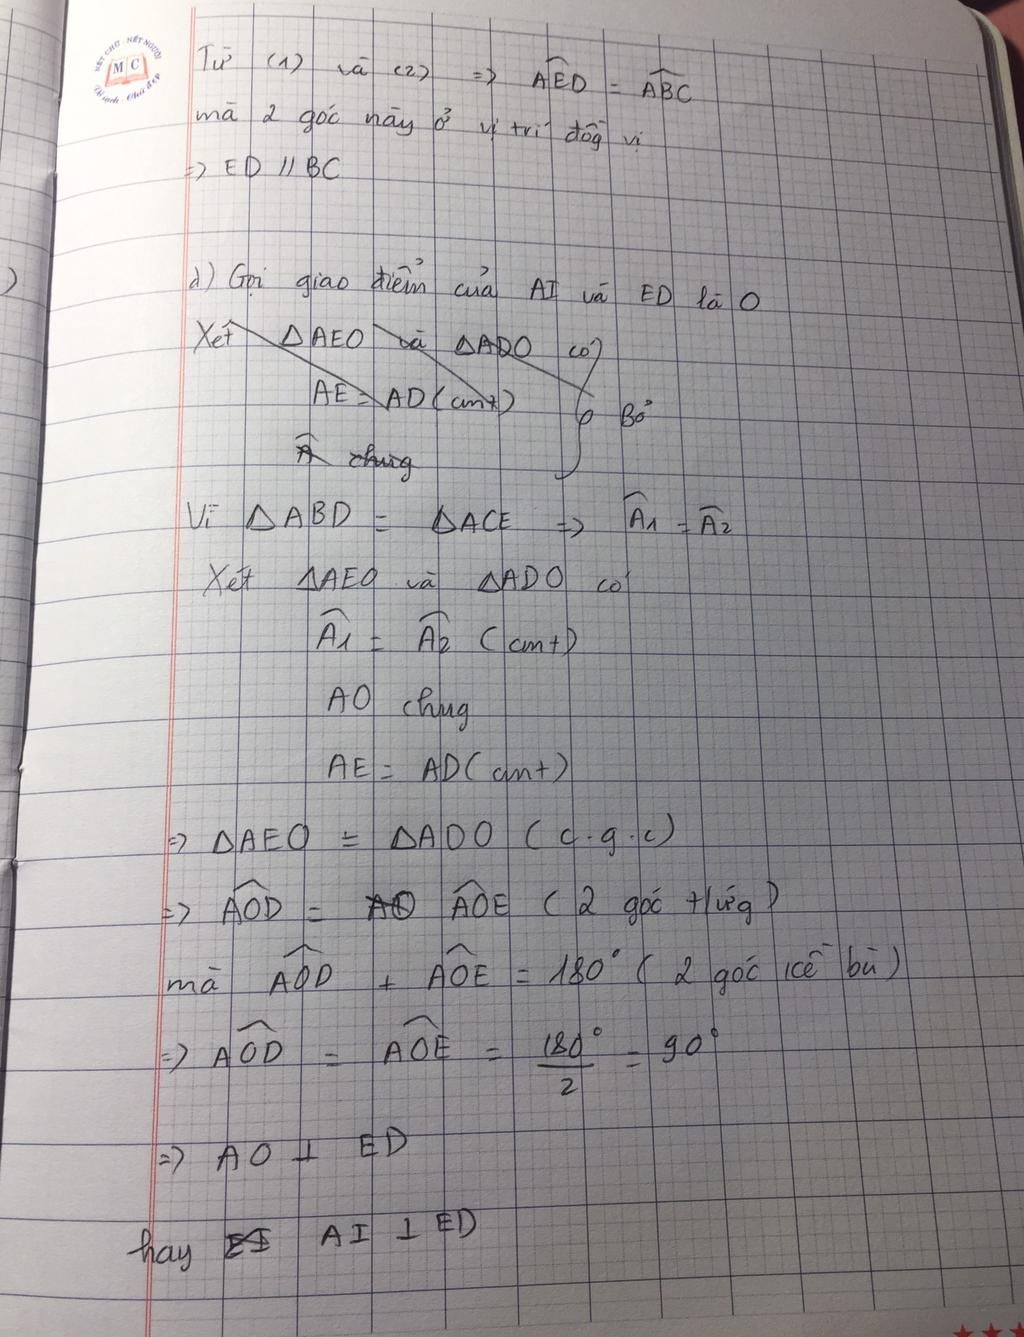 NÉT CHỮ - NẾT NGƯỜI
MC
Từ (1) và (2) => AED = ABC
mà 2 góc này ở vị trí đồg vị
=> ED // BC
d) Gọi giao điểm của AI và ED là O
Xét ΔAEO và ΔADO có
AE = AD (cmt)
Bỏ
A chung
Vì ΔABD = ΔACE => A1 = A2
Xét ΔAEO và ΔADO có
A1 = A2 (cmt)
AO chug
AE = AD (cmt)
=> ΔAEO = ΔADO (c.g.c)
=> AOD = AO AOE (2 góc t/ứg)
mà AOD + AOE = 180° (2 góc kề bù)
=> AOD = AOE = 180°/2 = 90°
=> AO ⊥ ED
hay AI ⊥ ED